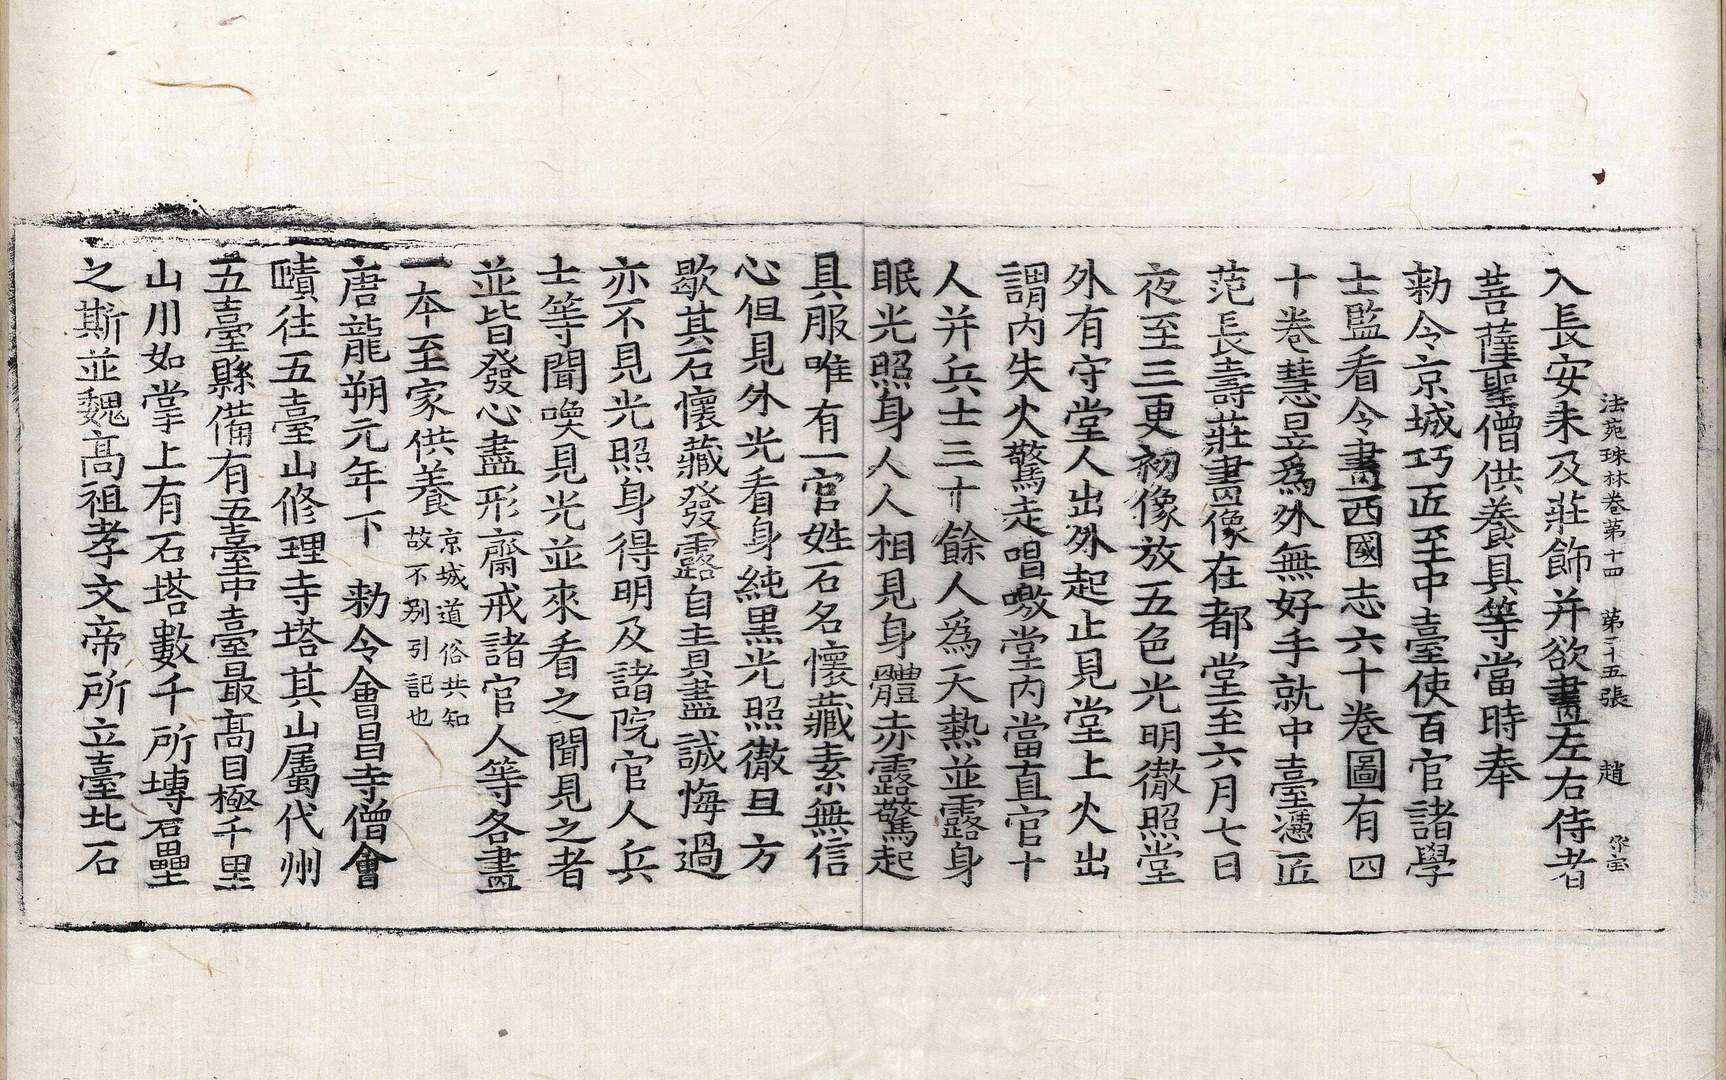 法苑珠林卷第十四 第二十五張 趙
入長安未及莊飾并欲畫左右侍者
菩薩聖僧供養具等當時奉
勑令京城巧匠至中臺使百官諸學
士監看令畫西國志六十卷圖有四
十卷慧昱爲外無好手就中臺憑匠
范長壽莊畫像在都堂至六月七日
夜至三更初像放五色光明徹照堂
外有守堂人出外起止見堂上火出
謂內失火驚走唱噭堂內當直官十
人并兵士三十餘人爲天熱並露身
眠光照身人人相見身體赤露驚起
具服唯有一官姓石名懷藏素無信
心但見外光看身純黑光照徹旦方
歇其石懷藏發露自責盡誠悔過
亦不見光照身得明及諸院官人兵
士等聞喚見光並來看之聞見之者
並皆發心盡形齋戒諸官人等各畫
一本至家供養京城道俗共知
故不別引記也
唐龍朔元年下 勑令會昌寺僧會
賾往五臺山修理寺塔其山屬代州
五臺縣備有五臺中臺最高目極千里
山川如掌上有石塔數千所塼石壘
之斯並魏高祖孝文帝所立臺北石